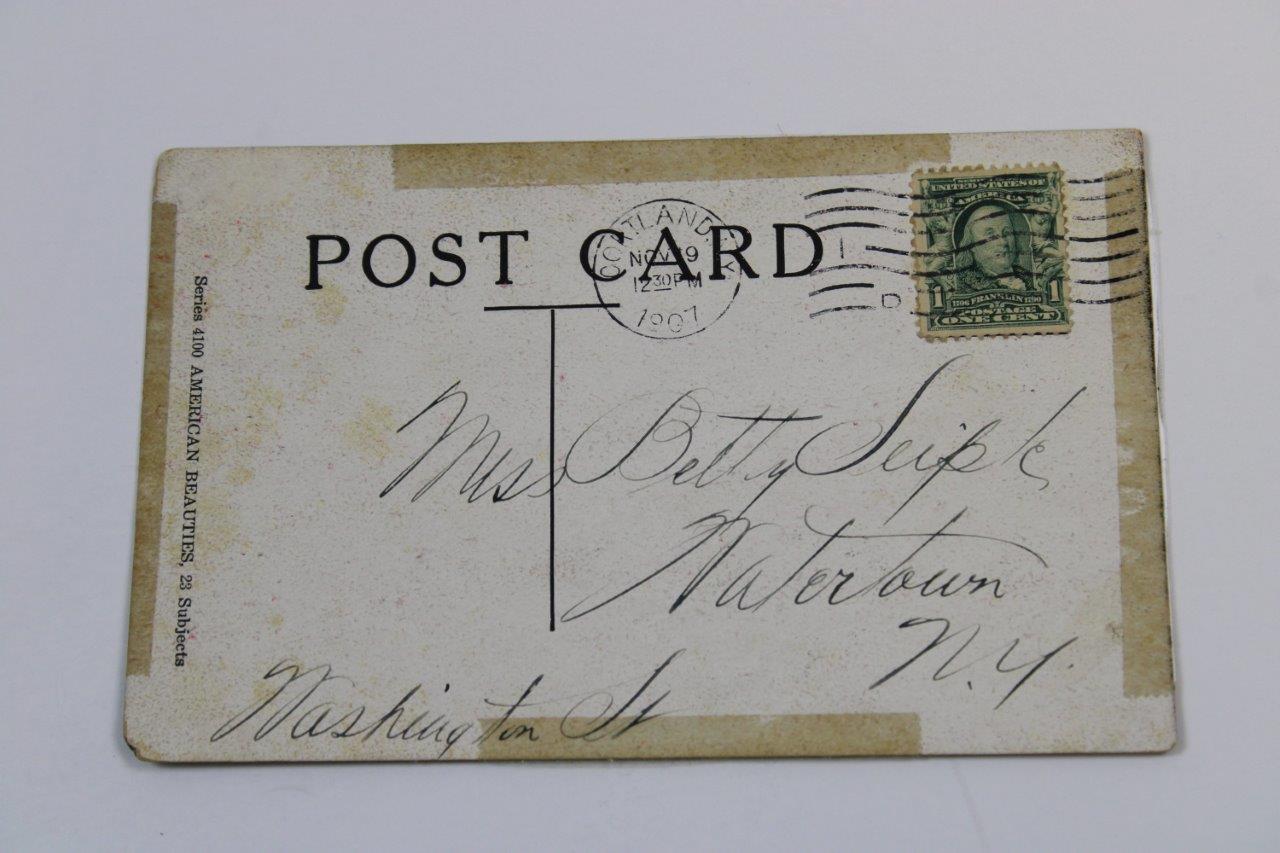 POST CARD
CORTLAND, N.Y.
NOV 9
12 30 PM
1907
1
D
SERIES 1902
UNITED STATES OF
AMERICA
1 1
1706 FRANKLIN 1790
POSTAGE
ONE CENT
Series 4100 AMERICAN BEAUTIES, 23 Subjects
Miss Betty Seipk
Watertown
N.Y.
Washington St